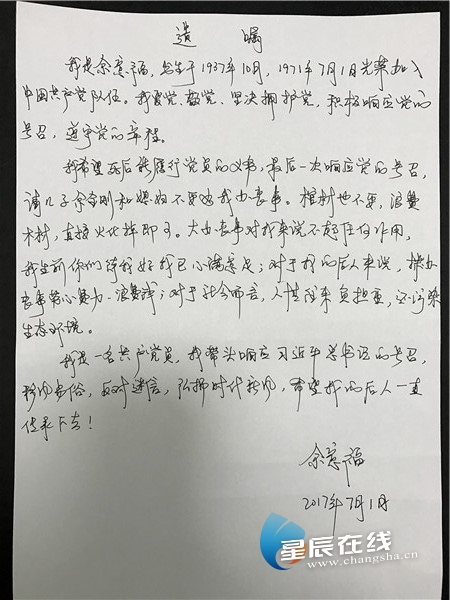 遗嘱
我是余意福，出生于1937年10月，1971年7月1日光荣加入
中国共产党队伍。我爱党、敬党、坚决拥护党，积极响应党的
号召，遵守党的章程。
我希望死后能履行党员的义务，最后一次响应党的号召，
请儿子余金刚和媳妇不要为我办丧事。棺材也不要，浪费
木材，直接火化掉即可。大办丧事对我来说不起任何作用，
我生前你们待我好我已心满意足；对于我的后人来说，操办
丧事劳心费力、浪费钱；对于社会而言，人情往来负担重，还污染
生态环境。
我是一名共产党员，我带头响应习近平总书记的号召，
移风易俗，反对迷信，弘扬时代新风，希望我的后人一直
传承下去！
余意福
2017年7月1日
星辰在线
www.changsha.cn